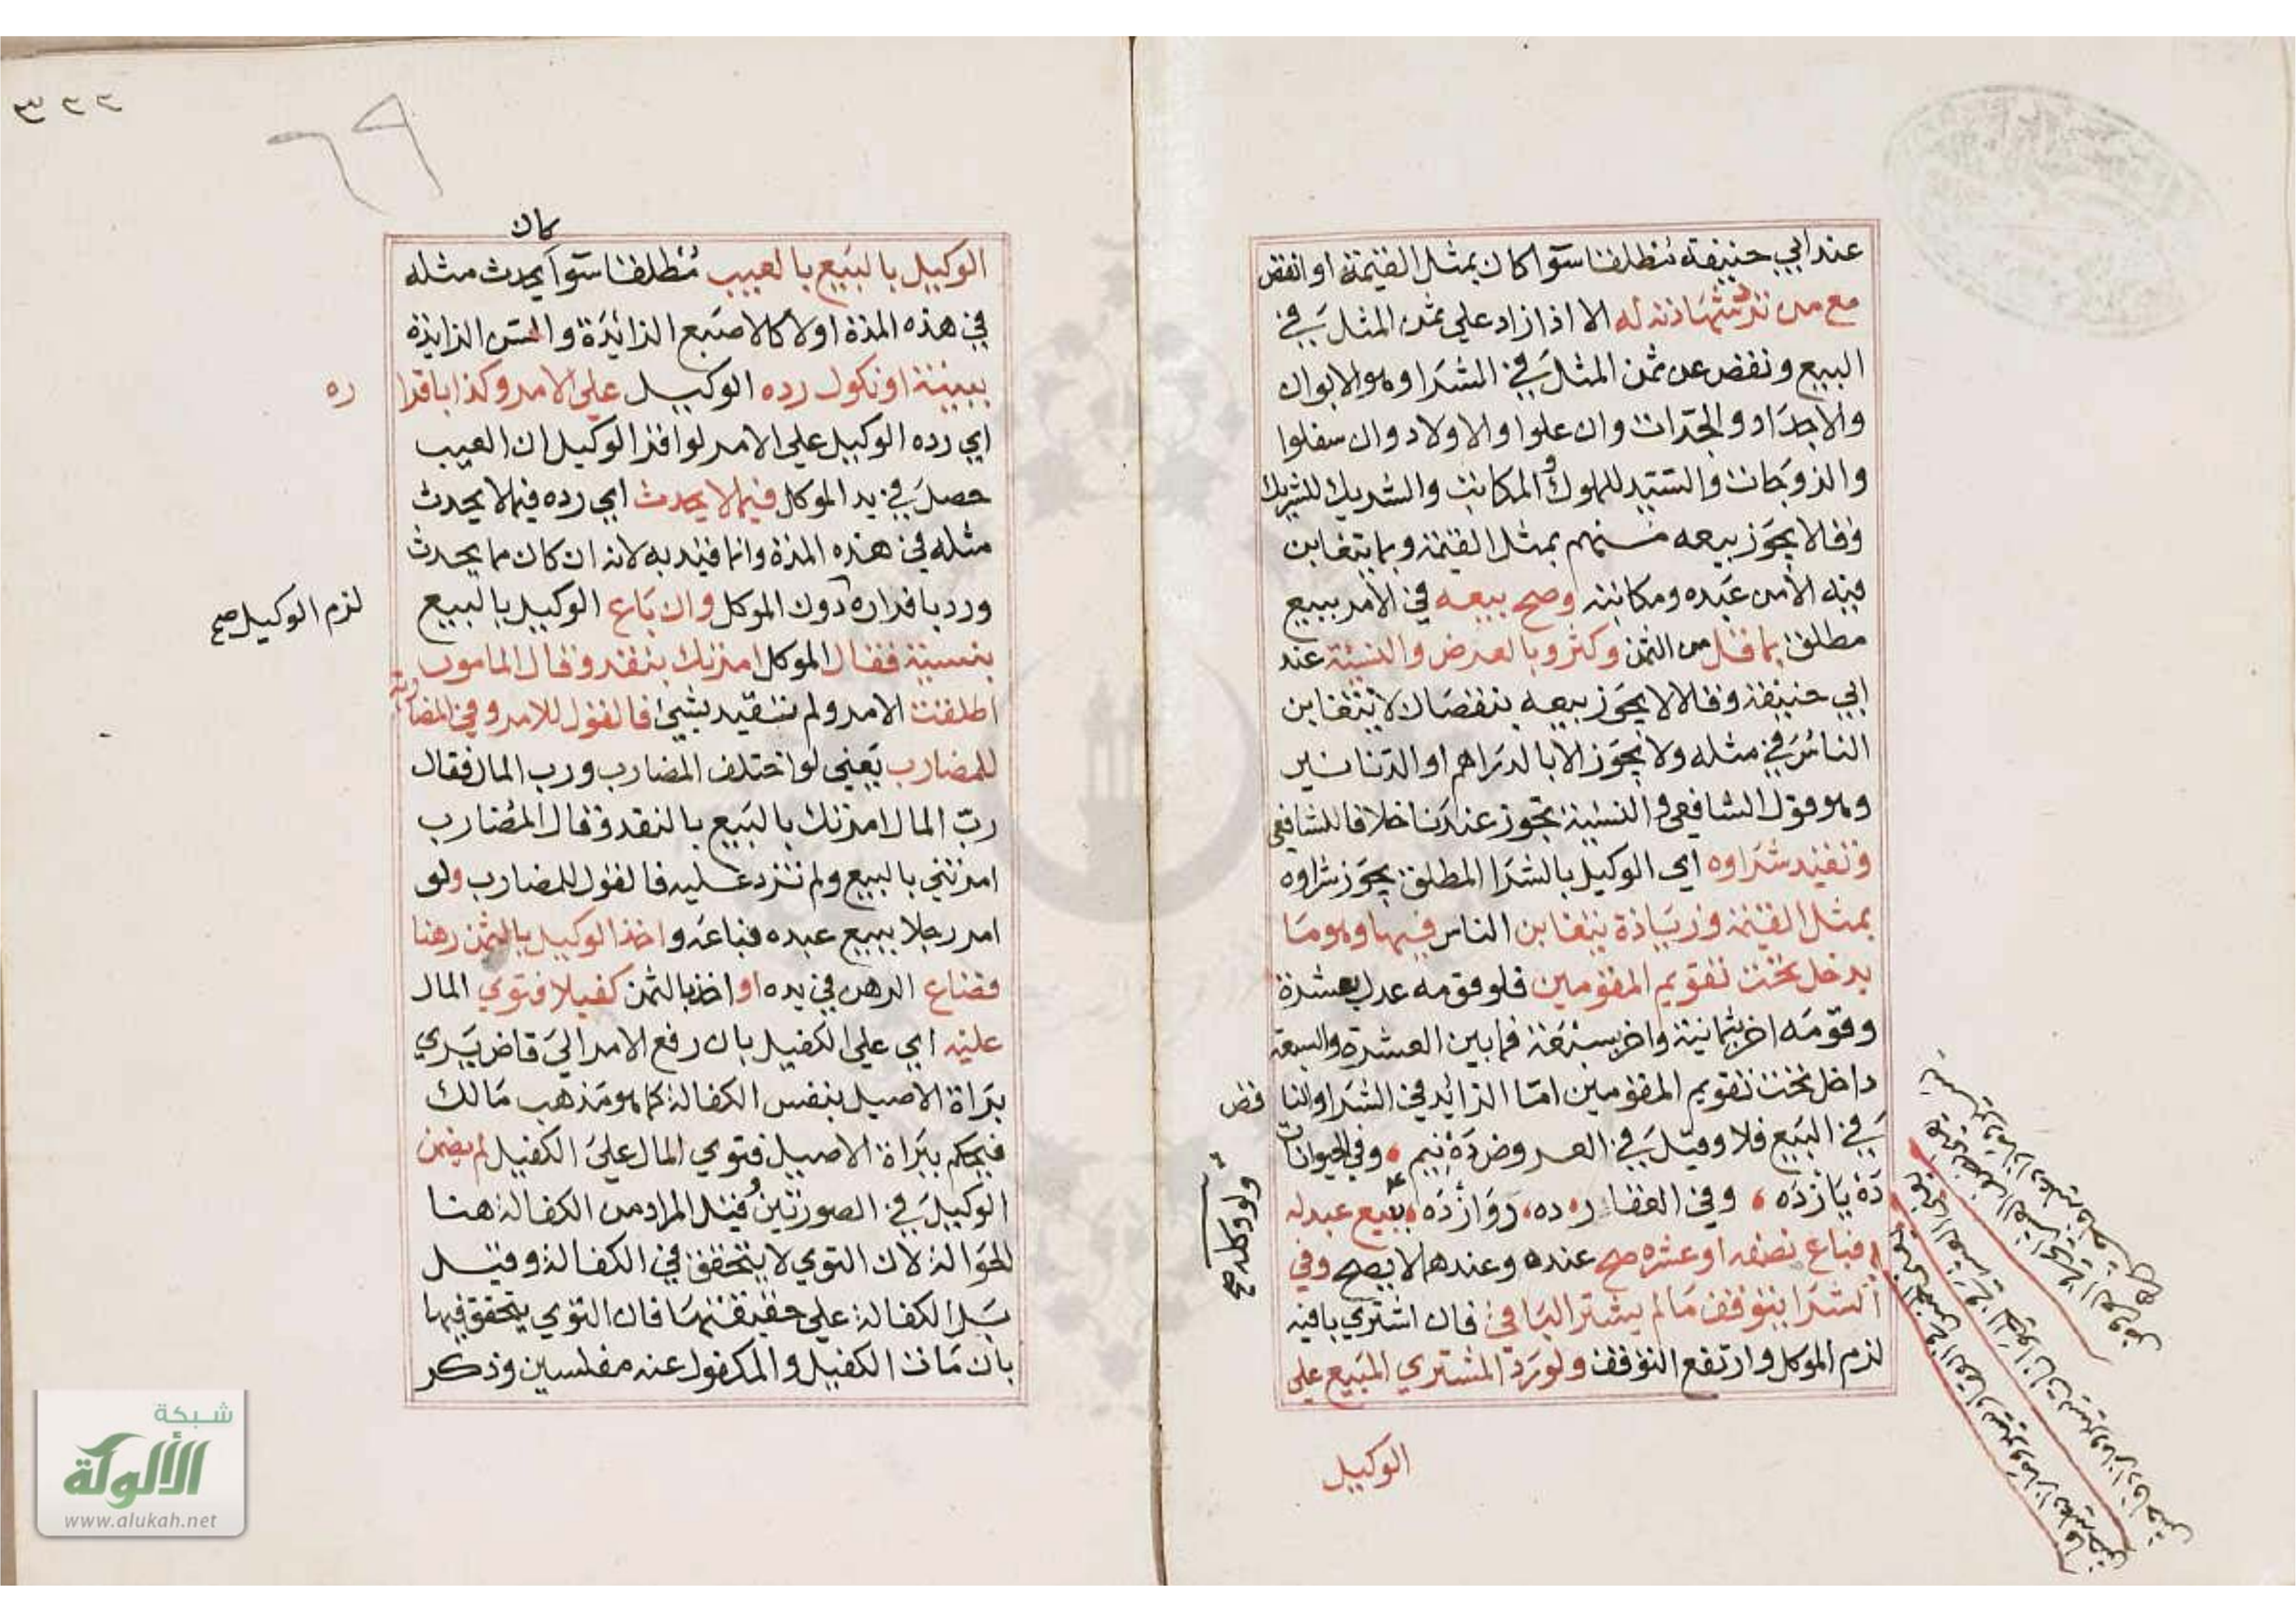 عند ابي حنيفة مطلقا سوا كان بمثل القيمة او انقص
مع من ترد شهادته له الا اذا زاد على ثمن المثل في
البيع ونقص عن ثمن المثل في الشرا وهو الابوان
والاجداد والجدات وان علوا والاولاد وان سفلوا
والزوجان والسيد للمملوك والمكاتب والشريك للشريك
وقالا يجوز بيعه منهم بمثل القيمة وبما يتغابن
فيه الا من عبده ومكاتبه وصح بيعه في الامر ببيع
مطلق بما قل من الثمن وكثر وبالعرض والنسيئة عند
ابي حنيفة وقالا لا يجوز بيعه بنقصان لا يتغابن
الناس في مثله ولا يجوز الا بالدراهم او الدنانير
وهو قول الشافعي والنسيئة تجوز عندنا خلافا للشافعي
وتقيد شراوه اي الوكيل بالشرا المطلق يجوز شراوه
بمثل القيمة وزيادة يتغابن الناس فيها وهو ما
يدخل تحت تقويم المقومين فلو قومه عدل بعشرة
وقومه اخر بثمانية واخر بسبعة فما بين العشرة والسبعة
داخل تحت تقويم المقومين اما الزائد في الشرا والنا قض
في البيع فلا وقيل في العروض ده نيم ، وفي الحيوانات
ده يازده ، وفي العقار ده، دوازده ، ببيع عبد له
فباع نصفه او عشره صح عنده وعندهما لا يصح وفي
الشرا يتوقف ما لم يشتر الباقي فان اشتري باقيه
لزم الموكل وارتفع التوقف ولو رد المشتري المبيع على
الوكيل
ولو وكله صح
٢٢٣
٦٩
كان
الوكيل بالبيع بالعيب مطلقا سوا يحدث مثله
في هذه المدة او لا كالاصبع الزائدة والسن الزايدة
ببينة او نكول رده الوكيل على الامر وكذا باقرا ره
اي رده الوكيل على الامر لو اقر الوكيل ان العيب
حصل في يد الموكل فيما لا يحدث اي رده فيما لا يحدث
مثله في هذه المدة وانما قيد به لانه ان كان مما يحدث
ورد باقراره دون الموكل وان باع الوكيل بالبيع
لزم الوكيل صح
بنسيئة فقال الموكل امرتك بنقد وقال المامور
اطلقت الامر ولم تتقيد بشيئ فالقول للامر وفي المضاربة
للمضارب يعني لو اختلف المضارب ورب المال فقال
رب المال امرتك بالبيع بالنقد وقال المضارب
امرتني بالبيع ولم تزد عليه فالقول للمضارب ولو
امر رجلا ببيع عبده فباعه واخذ الوكيل بالثمن رهنا
فضاع الرهن في يده او اخذ بالثمن كفيلا فتوي المال
عليه اي على الكفيل بان رفع الامر الى قاض يري
براة الاصيل بنفس الكفالة كما هو مذهب مالك
فيحكم ببراة الاصيل فتوي المال على الكفيل لم يضمن
الوكيل في الصورتين قيل المراد من الكفالة هنا
الحوالة لان التوي لا يتحقق في الكفالة وقيل
بل الكفالة على حقيقتها فان التوي يتحقق فيها
بان مات الكفيل والمكفول عنه مفلسين وذكر
شبكة
الألوكة
www.alukah.net